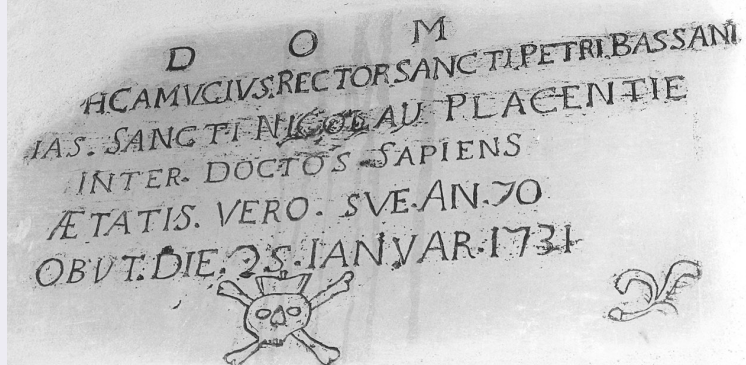 D O M
H.CAMVCIVS.RECTOR.SANCTI.PETRI.BASSANI
IAS. SANCTI NICOLAU PLACENTIE
INTER. DOCTOS. SAPIENS
ÆTATIS. VERO. SVE. AN. 70
OBVT. DIE. 25. IANVAR. 1731